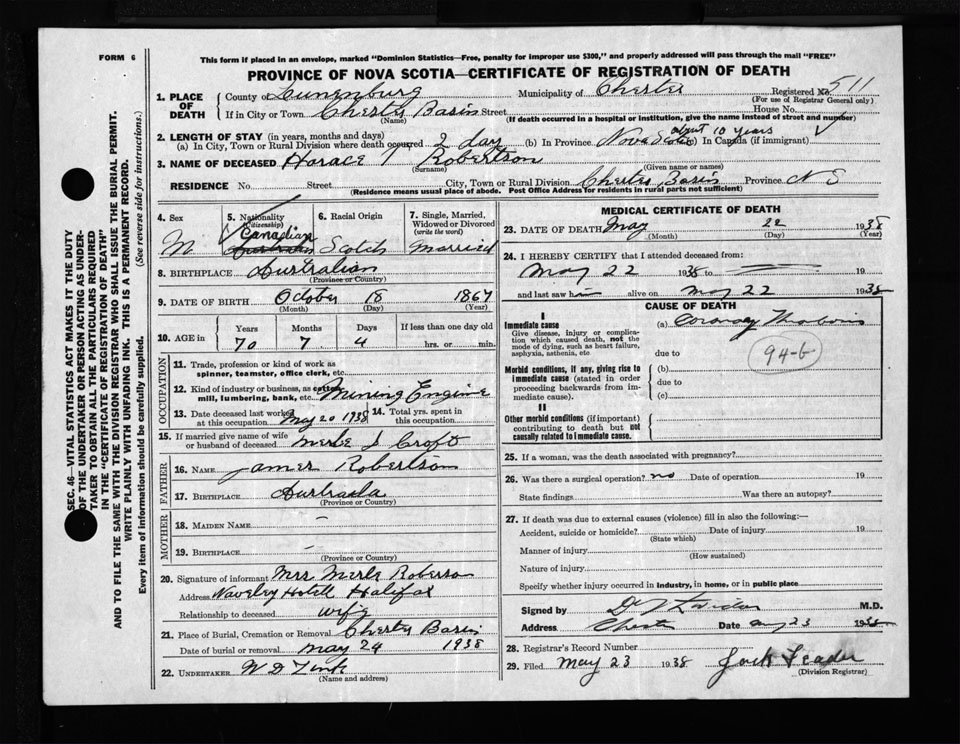 FORM 6
This form if placed in an envelope, marked "Dominion Statistics—Free, penalty for improper use $300," and properly addressed will pass through the mail "FREE"
PROVINCE OF NOVA SCOTIA—CERTIFICATE OF REGISTRATION OF DEATH
1. PLACE OF DEATH
County of Lunenburg Municipality of Chester Registered No. 511
(For use of Registrar General only)
If in City or Town Chester Basin Street House No.
(Name) (If death occurred in a hospital or institution, give the name instead of street and number)
2. LENGTH OF STAY (in years, months and days)
(a) In City, Town or Rural Division where death occurred 2 day (b) In Province Nova Scotia about 10 years In Canada (if immigrant) ✓
3. NAME OF DECEASED Horace T Robertson
(Surname) (Given name or names)
RESIDENCE No. Street City, Town or Rural Division Chester Basin Province N S
(Residence means usual place of abode. Post Office Address for residents in rural parts not sufficient)
4. Sex M
5. Nationality (Citizenship) Canadian Australian
6. Racial Origin Scotch
7. Single, Married, Widowed or Divorced (write the word) Married
8. BIRTHPLACE Australian
(Province or Country)
9. DATE OF BIRTH October 18 1867
(Month) (Day) (Year)
10. AGE in Years Months Days If less than one day old
70 7 4 hrs. or min.
OCCUPATION
11. Trade, profession or kind of work as spinner, teamster, office clerk, etc.
12. Kind of industry or business, as cotton mill, lumbering, bank, etc. Mining Engine
13. Date deceased last worked at this occupation May 20 1938 14. Total yrs. spent in this occupation
15. If married give name of wife or husband of deceased Merle S Croft
FATHER
16. NAME James Robertson
17. BIRTHPLACE
(Province or Country)
MOTHER
18. MAIDEN NAME —
19. BIRTHPLACE —
(Province or Country)
20. Signature of informant Mrs Merle
Address Halifax
Relationship to deceased wife
21. Place of Burial, Cremation or Removal Chester Basin
Date of burial or removal May 24 1938
22. UNDERTAKER W D Zink
(Name and address)
MEDICAL CERTIFICATE OF DEATH
23. DATE OF DEATH May 22 1938
(Month) (Day) (Year)
24. I HEREBY CERTIFY that I attended deceased from:
May 22 1938 to — 19
and last saw him alive on May 22 1938
CAUSE OF DEATH
I
Immediate cause (a) Coronary
Give disease, injury or complication which caused death, not the mode of dying, such as heart failure, asphyxia, asthenia, etc
due to 94-b
Morbid conditions, if any, giving rise to immediate cause (stated in order proceeding backwards from immediate cause). (b)
due to
(c)
II
Other morbid conditions (if important) contributing to death but not causally related to immediate cause.
25. If a woman, was the death associated with pregnancy?
26. Was there a surgical operation? no Date of operation 19
State findings Was there an autopsy?
27. If death was due to external causes (violence) fill in also the following:—
Accident, suicide or homicide? Date of injury 19
(State which)
Manner of injury
(How sustained)
Nature of injury
Specify whether injury occurred in industry, in home, or in public place
Signed by M.D.
Address Chester Date May 23 1938
28. Registrar's Record Number
29. Filed May 23 1938 Jack
(Division Registrar)
SEC. 46—VITAL STATISTICS ACT MAKES IT THE DUTY
OF THE UNDERTAKER OR PERSON ACTING AS UNDER-
TAKER TO OBTAIN ALL THE PARTICULARS REQUIRED
IN THE "CERTIFICATE OF REGISTRATION OF DEATH"
AND TO FILE THE SAME WITH THE DIVISION REGISTRAR WHO SHALL ISSUE THE BURIAL PERMIT.
WRITE PLAINLY WITH UNFADING INK. THIS IS A PERMANENT RECORD.
Every item of information should be carefully supplied. (See reverse side for instructions.)